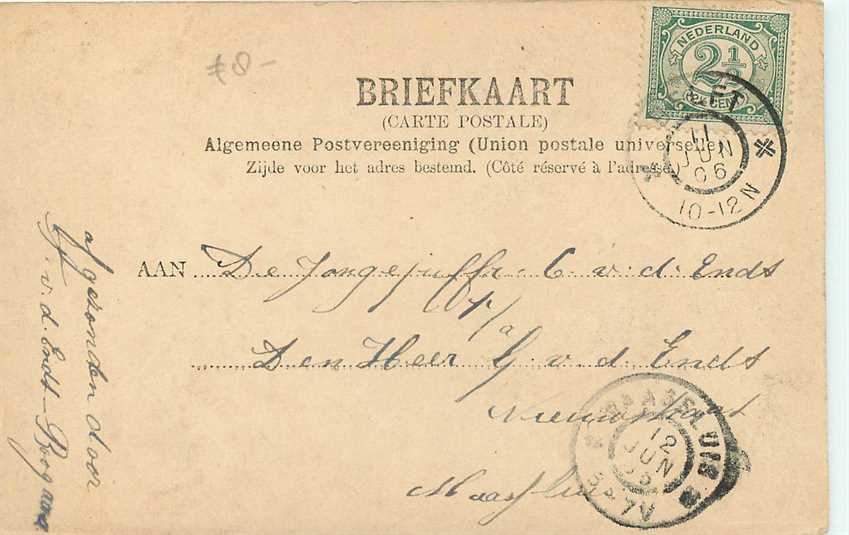 ƒ8-
NEDERLAND
2½
BRIEFKAART
(CARTE POSTALE)
Algemeene Postvereeniging (Union postale universelle)
Zijde voor het adres bestemd. (Côté réservé à l'adresse.)
DELFT
11
JUN
06
10-12N
AAN De Jongejuffr. C. v. d. Endt
p/a
Den Heer G. v. d. Endt
Nieuwstraat
Maassluis
MAASSLUIS
12
JUN
5-7V
afgezonden door
v. d. Endt-Boogaard